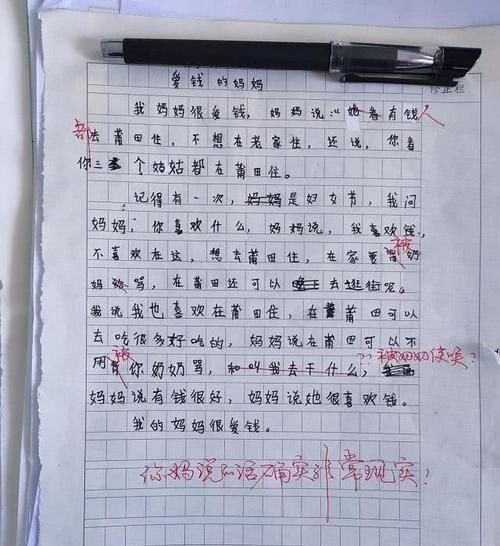 爱钱的妈妈
修正栏
我妈妈很爱钱，妈妈说：“她看有钱人
都去莆田住，不想在老家住，还说，你看
你三个姑姑都在莆田住。
记得有一次，妈妈是妇女节，我问
妈妈，你喜欢什么，妈妈说，我喜欢钱，
不喜欢在这，想去莆田住，在家要被奶奶
妈骂，在莆田还可以去逛街呢。
我说我也喜欢在莆田住，在莆田可以
去吃很多好吃的，妈妈说在莆田可以不
用被你奶奶骂，和叫我去干什么，被奶奶使唤？
妈妈说有钱很好，妈妈说她很喜欢钱。
我的妈妈很爱钱。
你妈说的话确实非常现实！